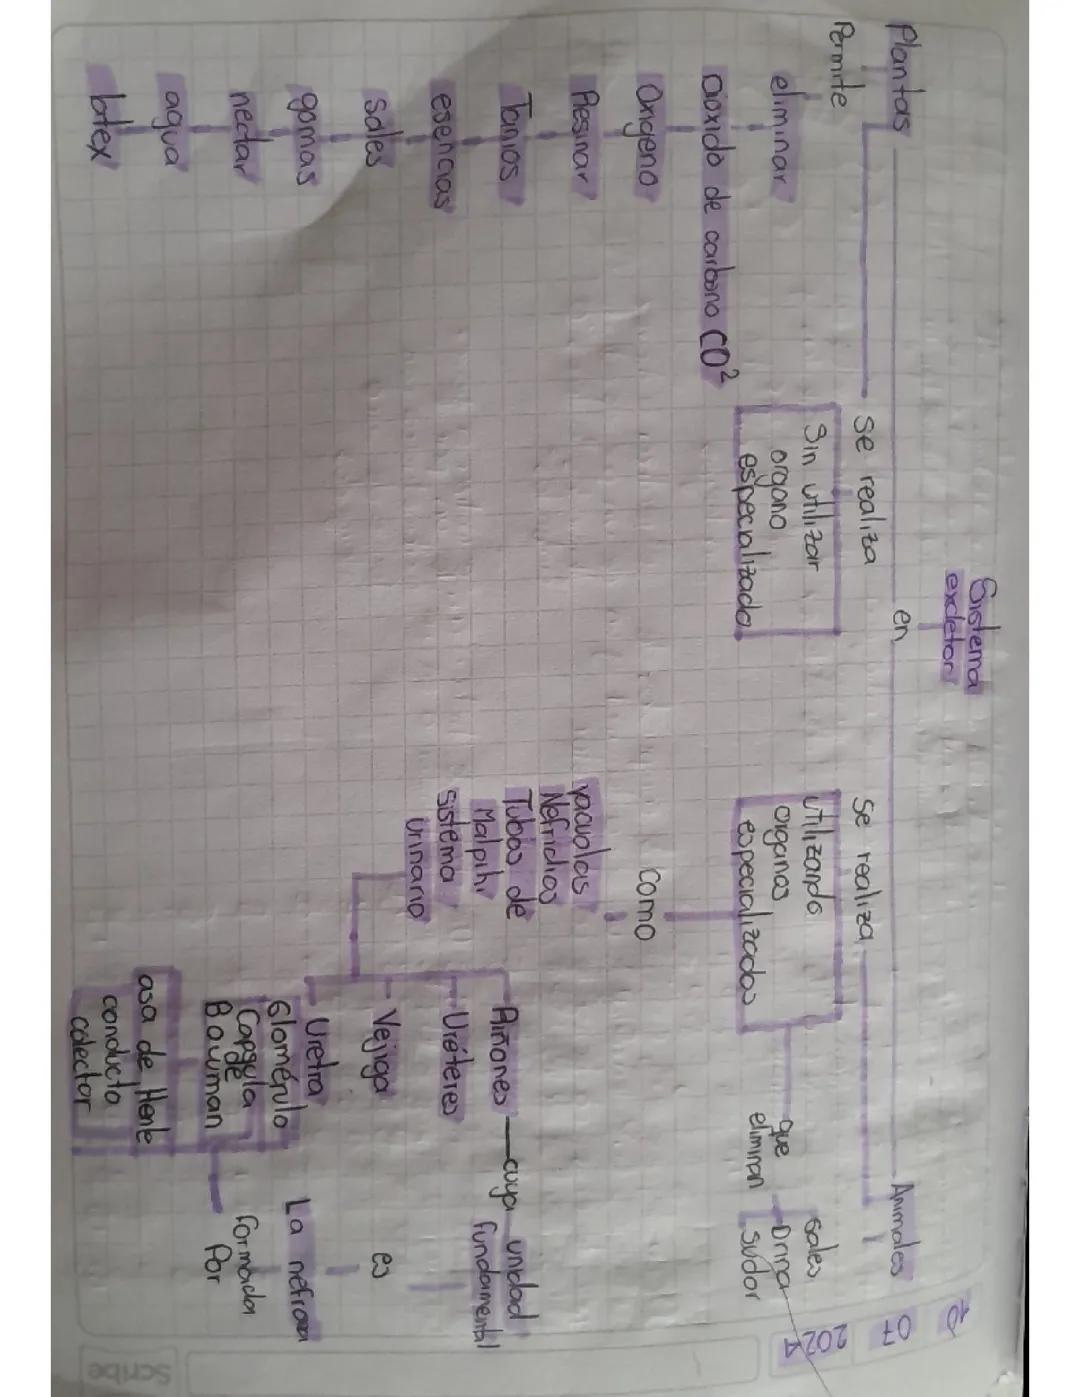 10 07 2024
Sistema
excletor
en
Plantas
Animales
Permite
se realiza
se realiza
eliminar
Sin utilizar
organo
especializado
utilizando
organos
especializados
que
eliminan
sales
Orina
sudor
Dioxido de carbono CO²
Oxigeno
Resinar
Tanios
esencias
sales
gomas
nectar
agua
latex
Como
vacuolas
Nefridios
Tubos de
Malpihi
sistema
urinario
Riñones
cuya unidad
fundamental
Uréteres
Vejiga
es
Uretra
La nefrona
Glomérulo
Capsula
de
Bowman
formada
Por
asa de Henle
conducto
colector
Scribe